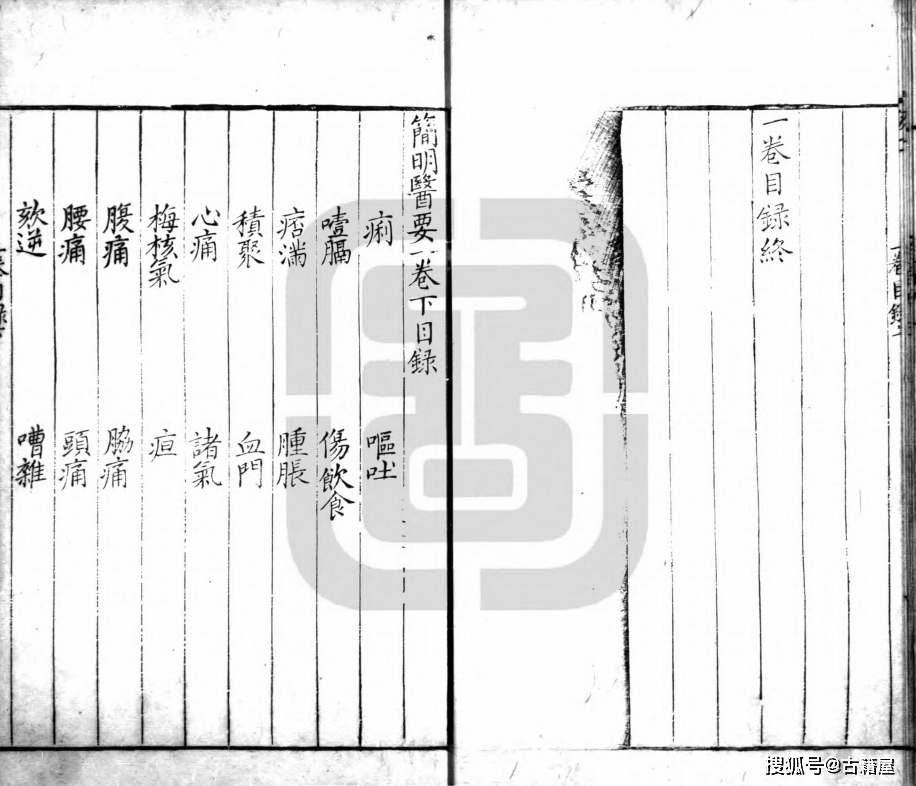 一卷目録終
簡明醫要一卷下目録
痢 嘔吐
噎膈 傷飲食
痞滿 腫脹
積聚 血門
心痛 諸氣
梅核氣 疸
腹痛 脇痛
腰痛 頭痛
欬逆 嘈雜
搜狐号@古籍屋